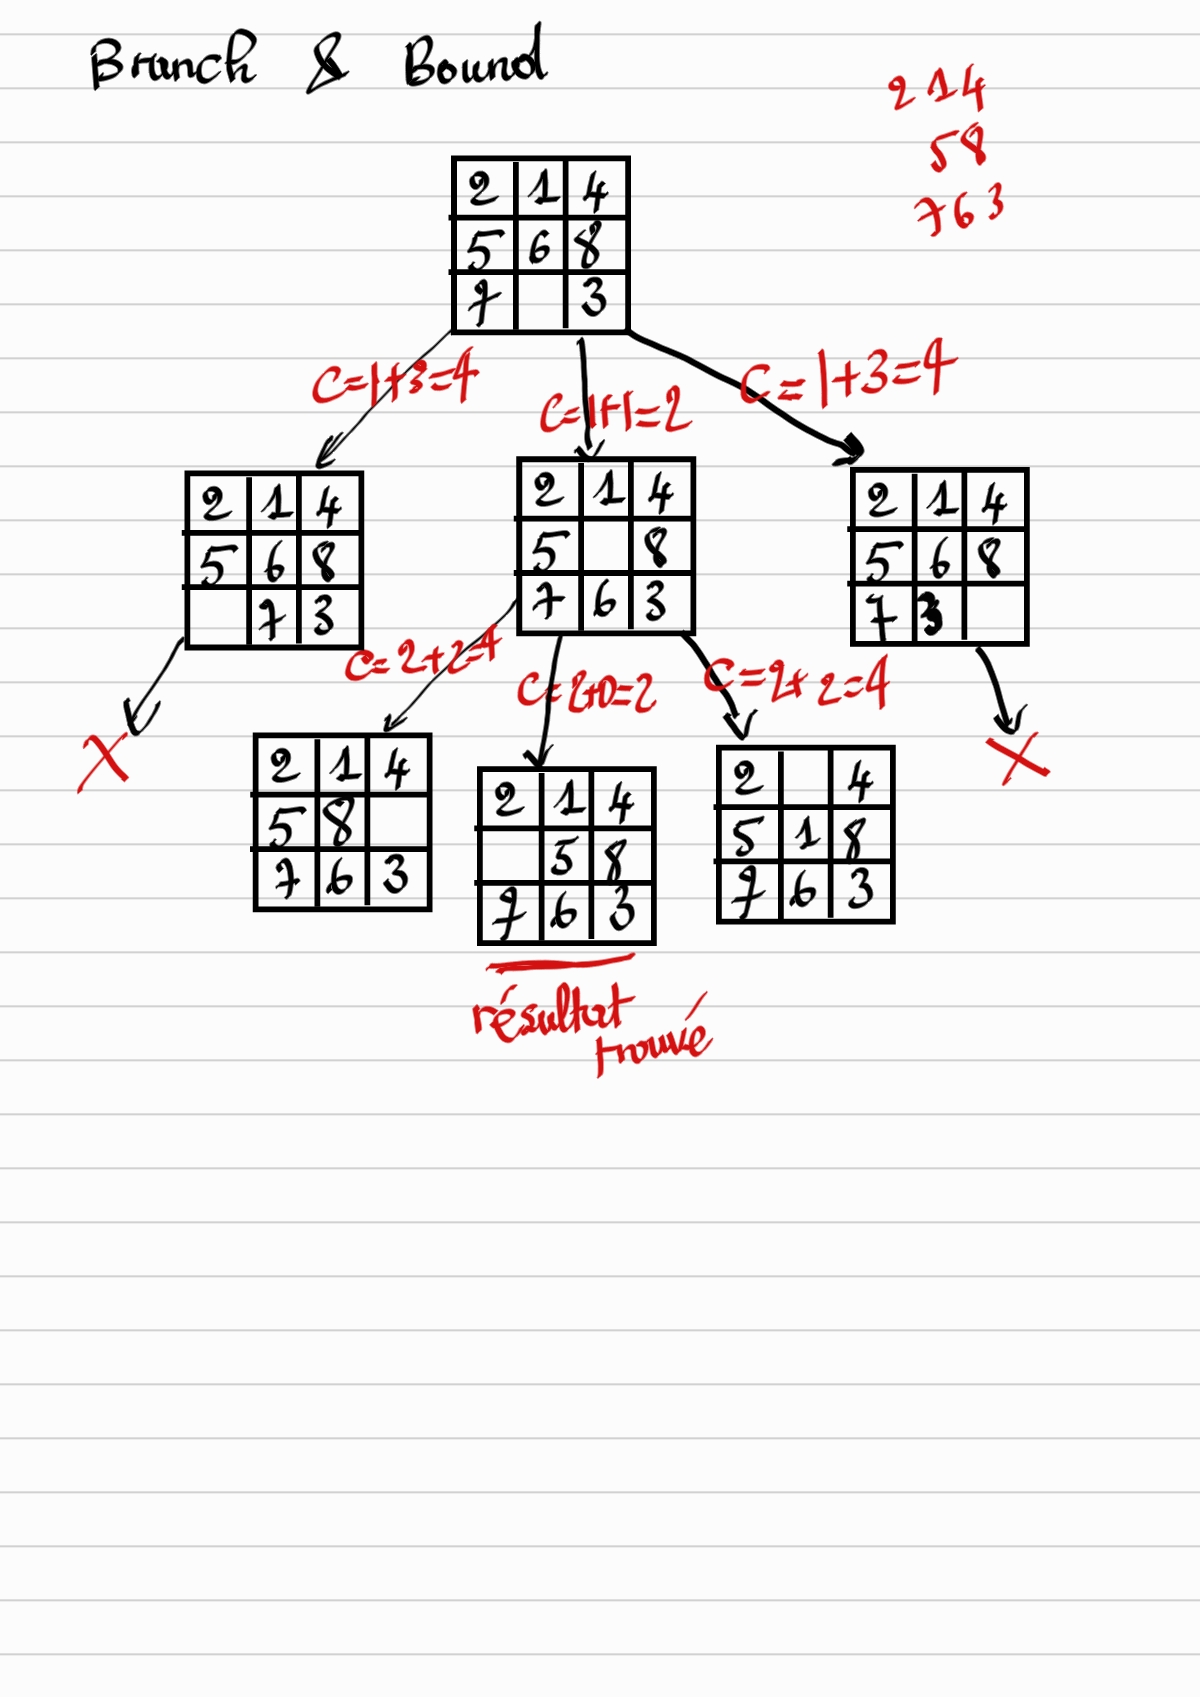 Branch & Bound
2 1 4
5 8
7 6 3
2 1 4
5 6 8
7 3
C=1+3=4
C=1+1=2
C=1+3=4
2 1 4
5 6 8
7 3
2 1 4
5 8
7 6 3
2 1 4
5 6 8
7 3
C=2+2=4
C=2+0=2
C=2+2=4
X
X
2 1 4
5 8
7 6 3
2 1 4
5 8
7 6 3
2 4
5 1 8
7 6 3
résultat
trouvé